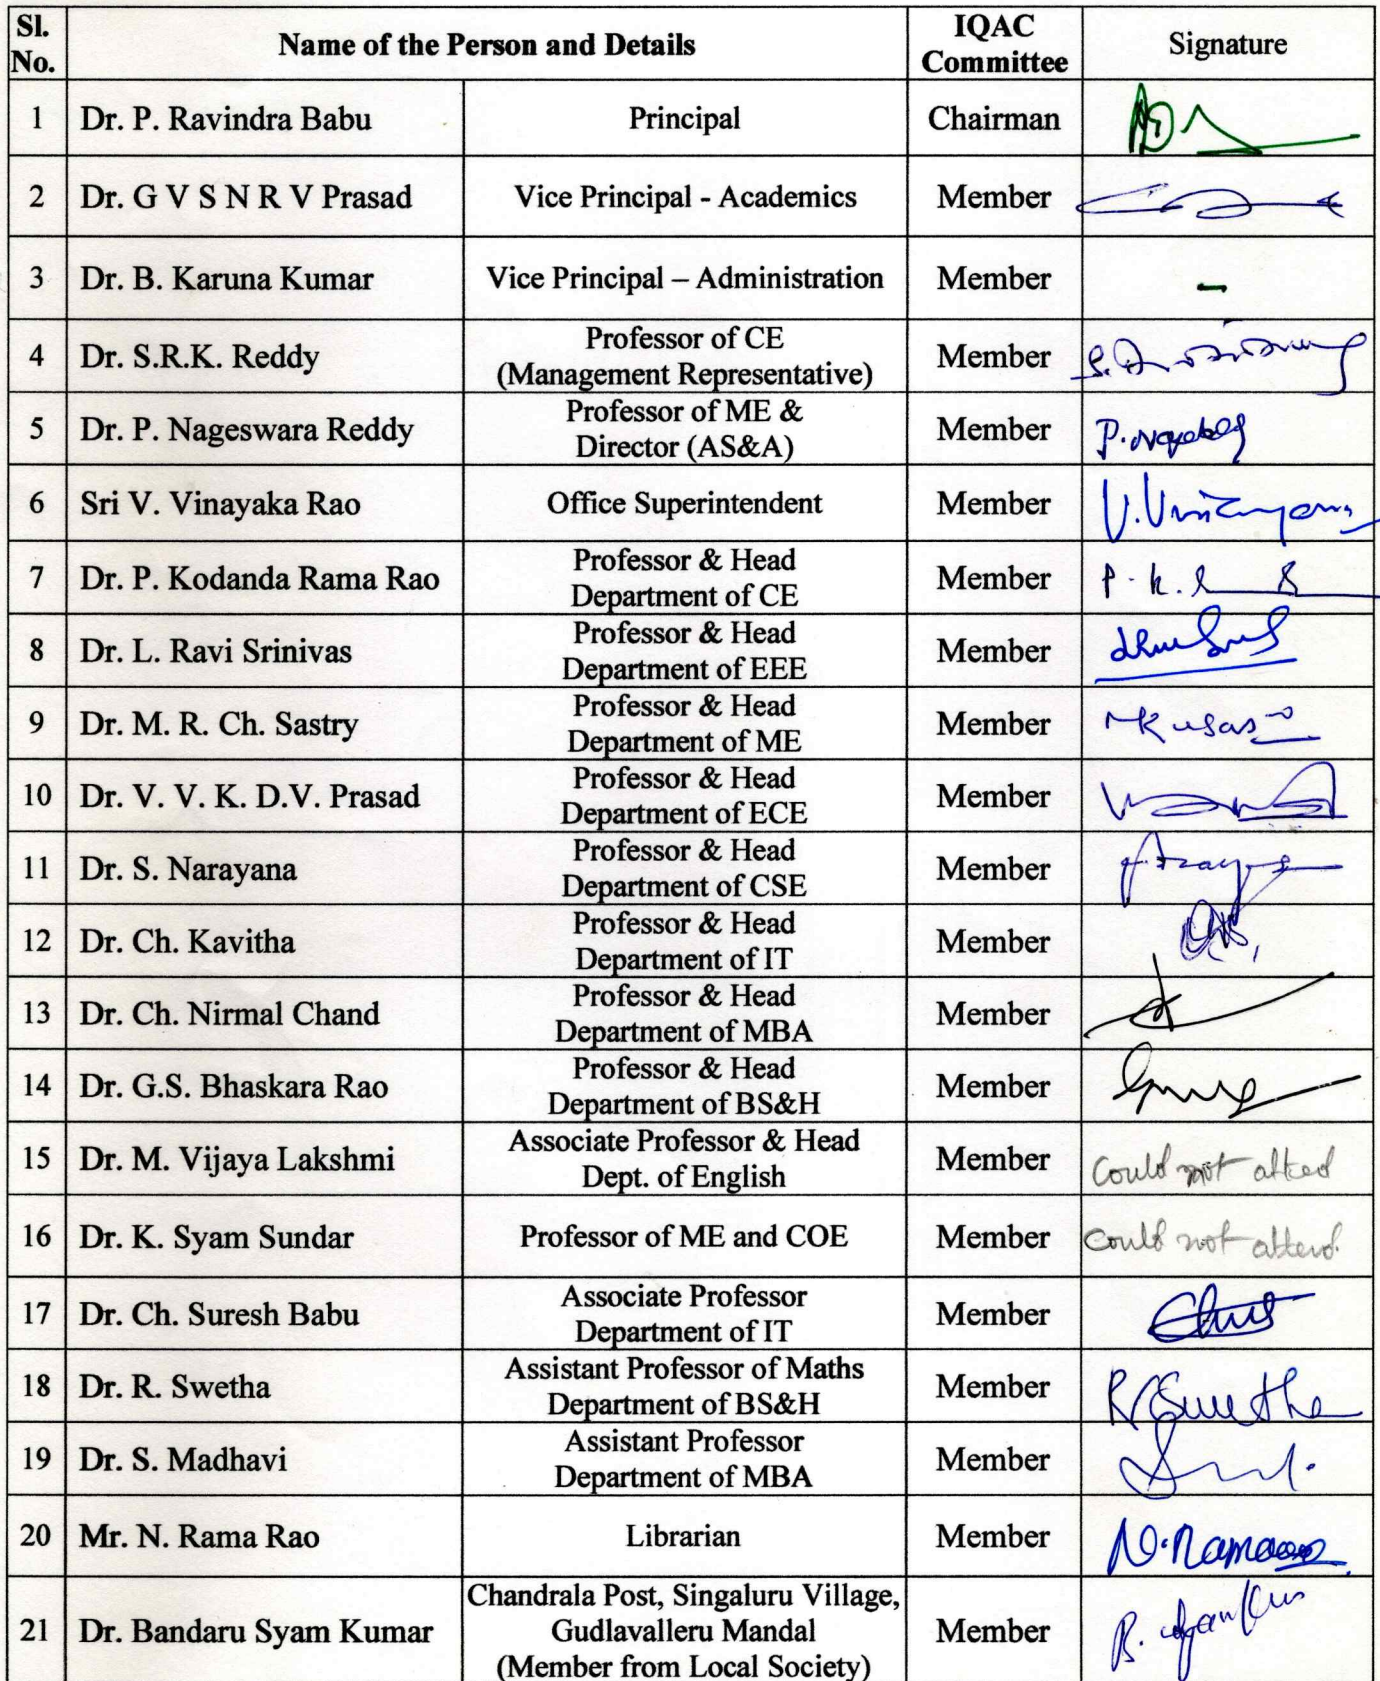 Sl. No. Name of the Person and Details IQAC Committee Signature
1 Dr. P. Ravindra Babu Principal Chairman
2 Dr. G V S N R V Prasad Vice Principal - Academics Member
3 Dr. B. Karuna Kumar Vice Principal – Administration Member -
4 Dr. S.R.K. Reddy Professor of CE (Management Representative) Member
5 Dr. P. Nageswara Reddy Professor of ME & Director (AS&A) Member
6 Sri V. Vinayaka Rao Office Superintendent Member
7 Dr. P. Kodanda Rama Rao Professor & Head Department of CE Member
8 Dr. L. Ravi Srinivas Professor & Head Department of EEE Member
9 Dr. M. R. Ch. Sastry Professor & Head Department of ME Member
10 Dr. V. V. K. D.V. Prasad Professor & Head Department of ECE Member
11 Dr. S. Narayana Professor & Head Department of CSE Member
12 Dr. Ch. Kavitha Professor & Head Department of IT Member
13 Dr. Ch. Nirmal Chand Professor & Head Department of MBA Member
14 Dr. G.S. Bhaskara Rao Professor & Head Department of BS&H Member
15 Dr. M. Vijaya Lakshmi Associate Professor & Head Dept. of English Member Could not attend
16 Dr. K. Syam Sundar Professor of ME and COE Member Could not attend.
17 Dr. Ch. Suresh Babu Associate Professor Department of IT Member
18 Dr. R. Swetha Assistant Professor of Maths Department of BS&H Member R. Swetha
19 Dr. S. Madhavi Assistant Professor Department of MBA Member
20 Mr. N. Rama Rao Librarian Member
21 Dr. Bandaru Syam Kumar Chandrala Post, Singaluru Village, Gudlavalleru Mandal (Member from Local Society) Member